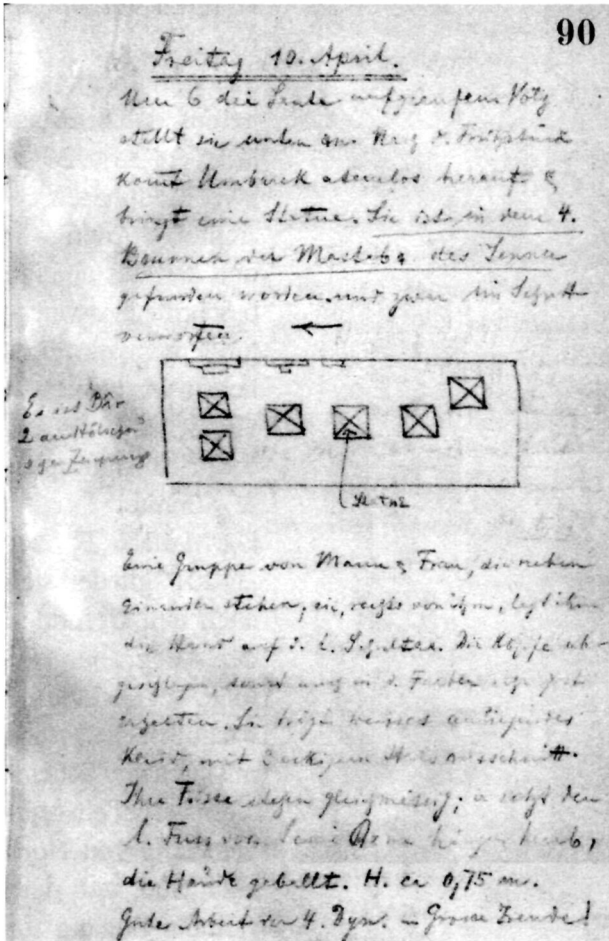 90
Freitag 10. April.
Um 6 die Leute
stellt sie unten am Weg d. Frühstück
komt Umbruck atemlos herauf &
bringt eine Statue. Sie ist in dem 4.
Brunnen der Mastaba des Senna
gefunden worden und zwar im Schutt
verworfen.
Statue
Eine Gruppe von Mann & Frau, die neben
einander stehen, sie, rechts von ihm, legt ihm
die Hand auf d. l. Schulter. Die Köpfe ab-
geschlagen, sonst auch in d. Farben sehr gut
erhalten. Sie trägt weisses anliegendes
Kleid, mit 3eckigem Halsausschnitt.
Ihre Füsse stehen gleichmässig; er setzt den
l. Fuss vor. Seine Arme hängen herab,
die Hände geballt. H. ca 0,75 m.
Gute Arbeit der 4. Dyn. – Grosse Freude!